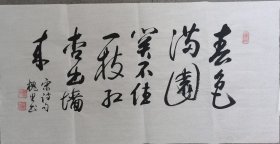 春色
满園
关不住
一枝红
杏出墙
来
宋诗句